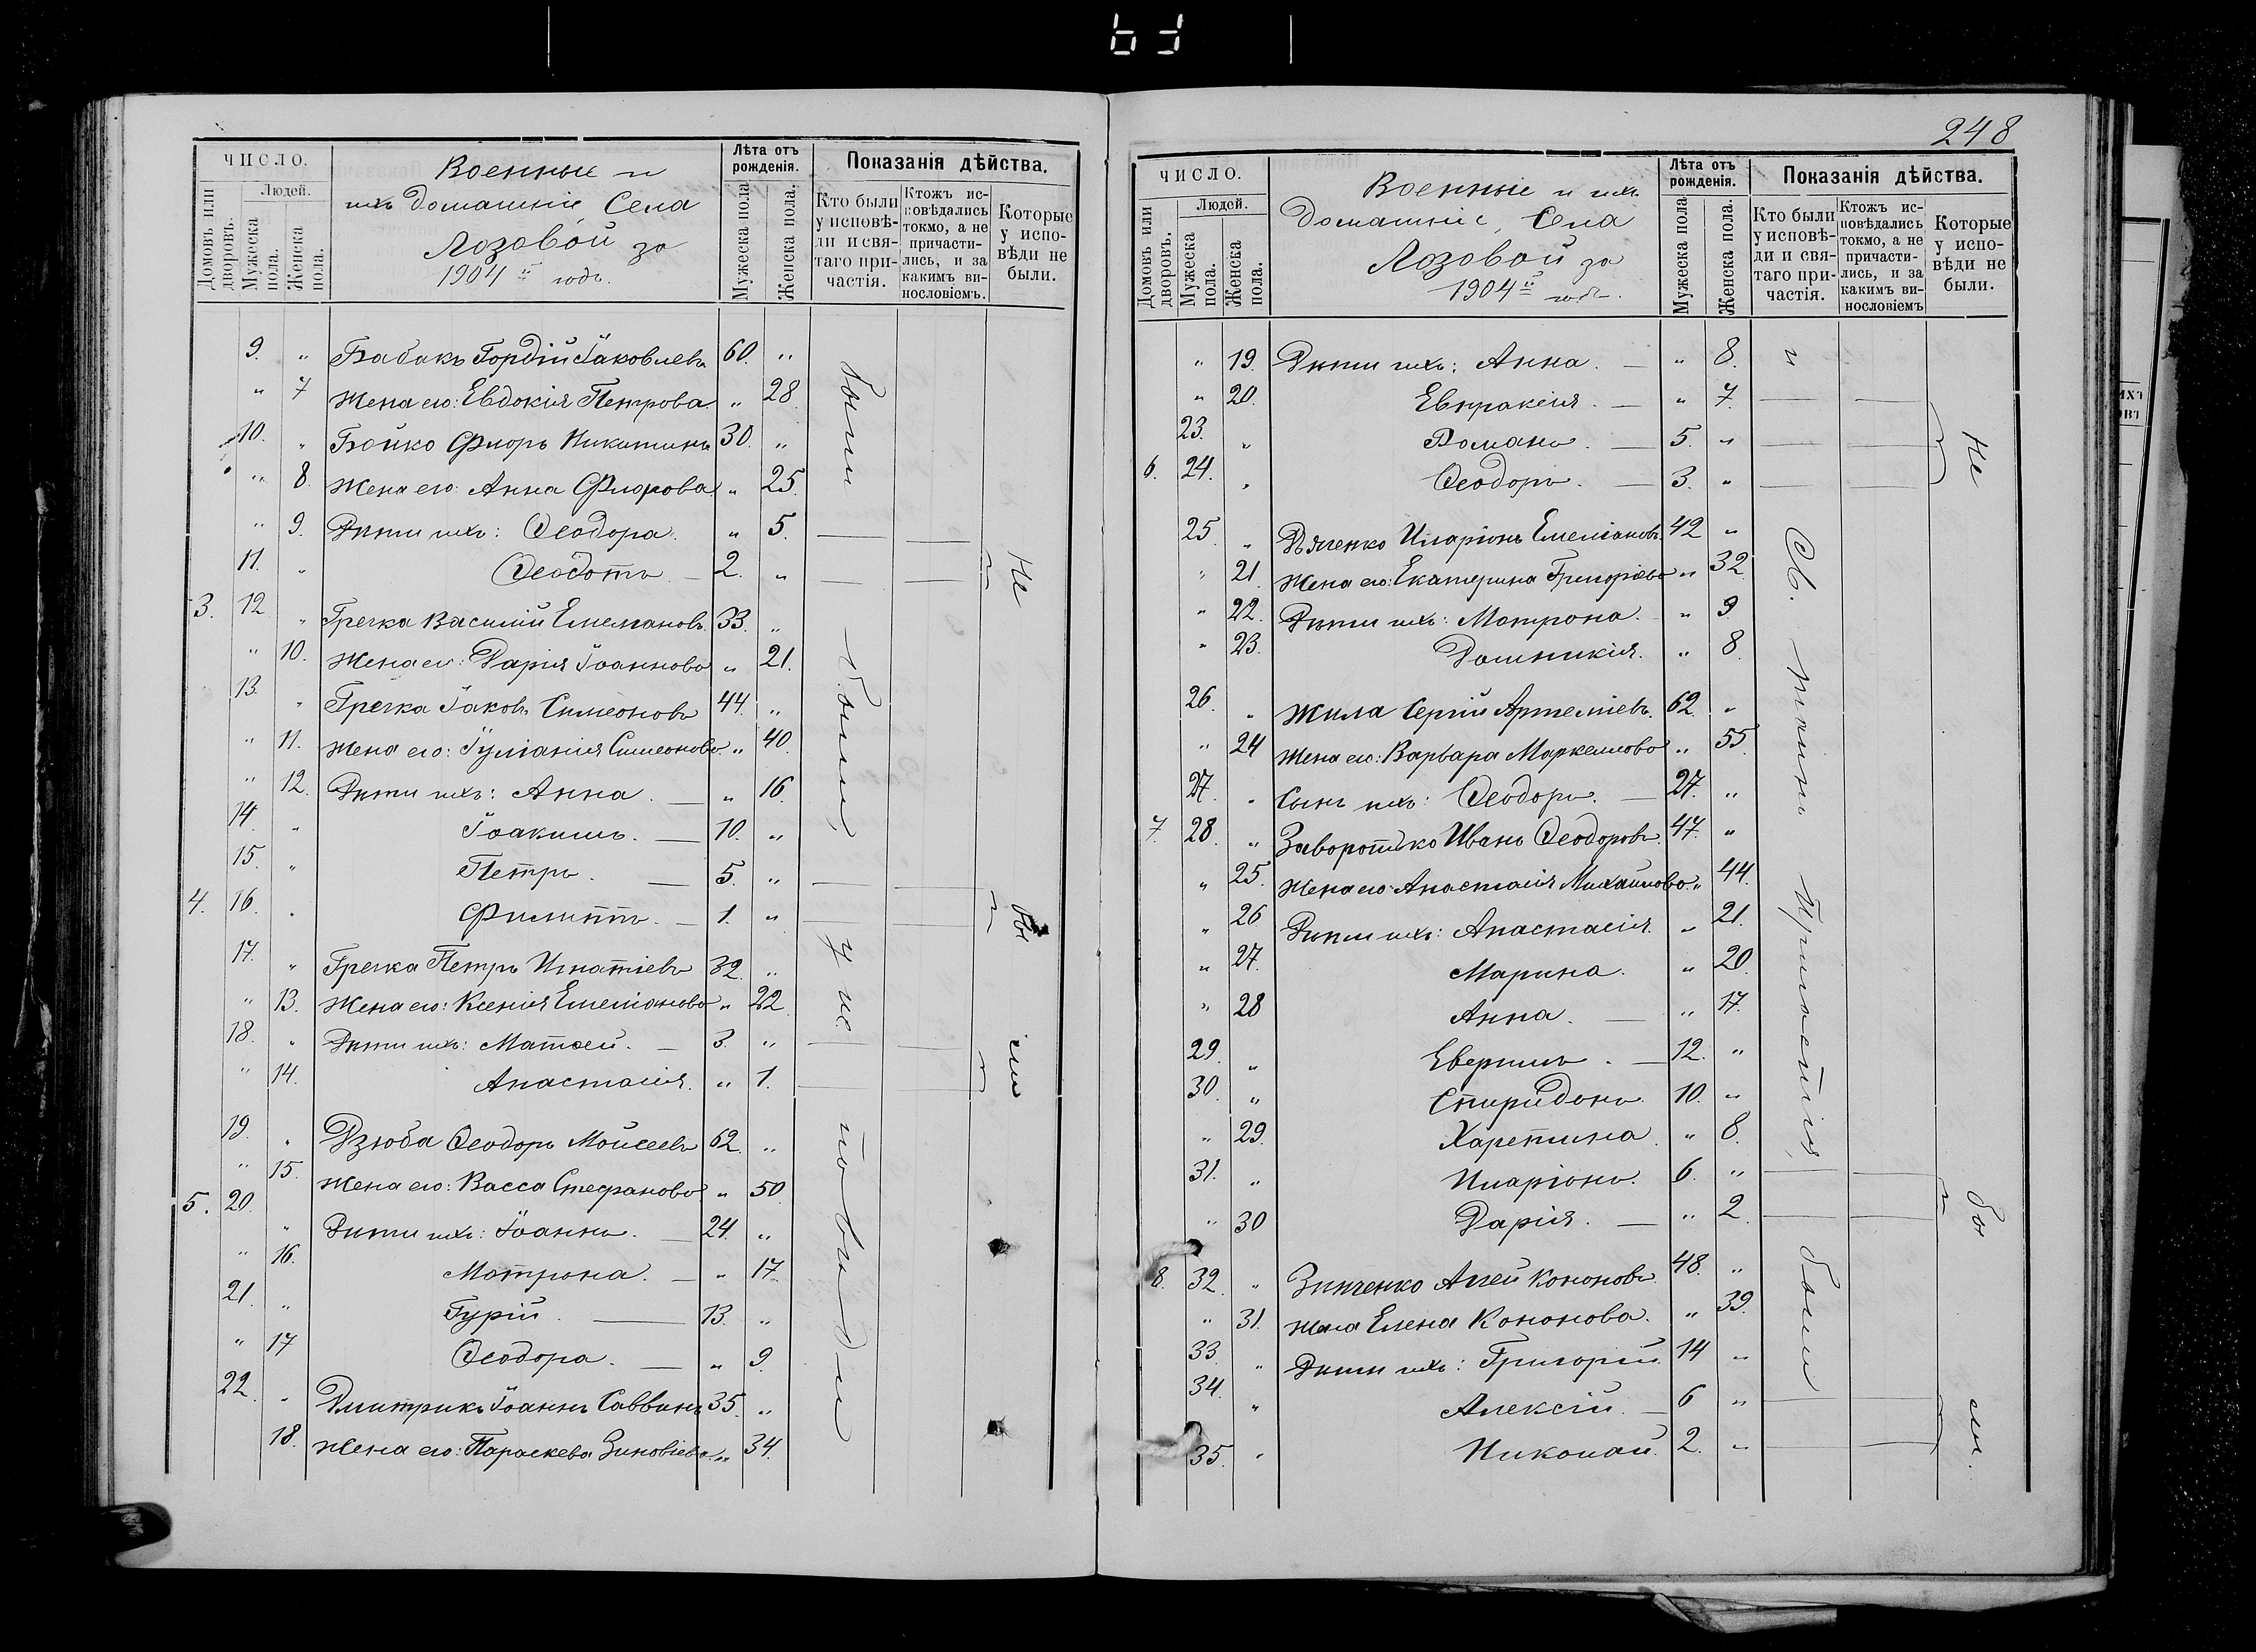 ЧИСЛО.
Людей.
Домовъ или дворовъ.
Мужеска пола.
Женска пола.
Военные и
ихъ домашніе, Села
Лозовой за
1904 й годъ.
Лѣта отъ рожденія.
Мужеска пола
Женска пола.
Показанія дѣйства.
Кто были у исповѣди и святаго причастія.
Ктожъ исповѣдались токмо, а не причастились, и за какимъ винословіемъ.
Которые у исповѣди не были.
9. " Бабакъ Гордій Іаковлевъ 60. "
" 7 Жена его: Евдокія Петрова. " 28.
10. " Бойко Флоръ Никитинъ 30. "
" 8. Жена его: Анна Флорова " 25.
" 9. Дѣти ихъ: Ѳеодора. " 5.
11. " Ѳеодотъ. 2. "
3. 12 " Гречка Василій Емеліановъ. 33. "
" 10. Жена его: Дарія Іоаннова " 21.
13. " Гречка Іаковъ Симеоновъ 44. "
" 11. Жена его: Іуліанія Симеонова " 40.
" 12. Дѣти ихъ: Анна. " 16.
14. " Іоакимъ. 10. "
15. " Петръ. 5. "
4. 16. " Филиппъ. 1. "
17. " Гречка Петръ Игнатіевъ 32. "
" 13. Жена его: Ксенія Емеліанова " 22
18. " Дѣти ихъ: Матѳей. 3. "
" 14. Анастасія. " 1.
19. " Дзюба Ѳеодоръ Моисеевъ 62. "
" 15. Жена его: Васса Стефанова " 50
5. 20. " Дѣти ихъ: Іоаннъ. 24. "
" 16. Матрона. " 17.
21. " Гурій. 13. "
" 17 Ѳеодора. " 9.
22. " Дмитрикъ Іоаннъ Саввинъ 35. "
18. Жена его: Параскева Зиновіева. " 34.
были
Не
бы
ли
248
ЧИСЛО.
Людей.
Домовъ или дворовъ.
Мужеска пола.
Женска пола.
Военные и ихъ
домашніе, Села
Лозовой за
1904 й годъ.
Лѣта отъ рожденія.
Мужеска пола
Женска пола.
Показанія дѣйства.
Кто были у исповѣди и святаго причастія.
Ктожъ исповѣдались токмо, а не причастились, и за какимъ винословіемъ
Которые у исповѣди не были.
" 19. Дѣти ихъ: Анна. " 8. и
" 20. Евпраксія. " 7.
23. " Романъ. 5. "
6. 24. " Ѳеодоръ. 3. "
25. " Дяченко Иларіонъ Емеліановъ. 42 "
" 21. Жена его: Екатерина Григоріева " 32.
" 22. Дѣти ихъ: Матрона. " 9.
" 23. Домникія. " 8.
26. " Жила Сергій Артеміевъ. 62. "
" 24 Жена его: Варвара Маркеллова " 55.
27. " Сынъ ихъ: Ѳеодоръ. 27. "
7. 28. " Заворотько Иванъ Ѳеодоровъ. 47. "
" 25. Жена его: Анастасія Михайлова " 44.
" 26 Дѣти ихъ: Анастасія. " 21.
" 27. Марина. " 20.
" 28 Анна. " 17.
29. " 12. "
30. " Спиридонъ. 10. "
" 29. Харетина. " 8.
31. " Иларіонъ. 6. "
" 30 Дарія. " 2.
8. 32. " Зинченко Кононовъ. 48. "
" 31. Жена Елена Кононова. " 39.
33. " Дѣти ихъ: Григорій. 14 "
34. " Алексій. 6 "
35. " Николай. 2. "
Св. Причастія были
Не
бы
ли.